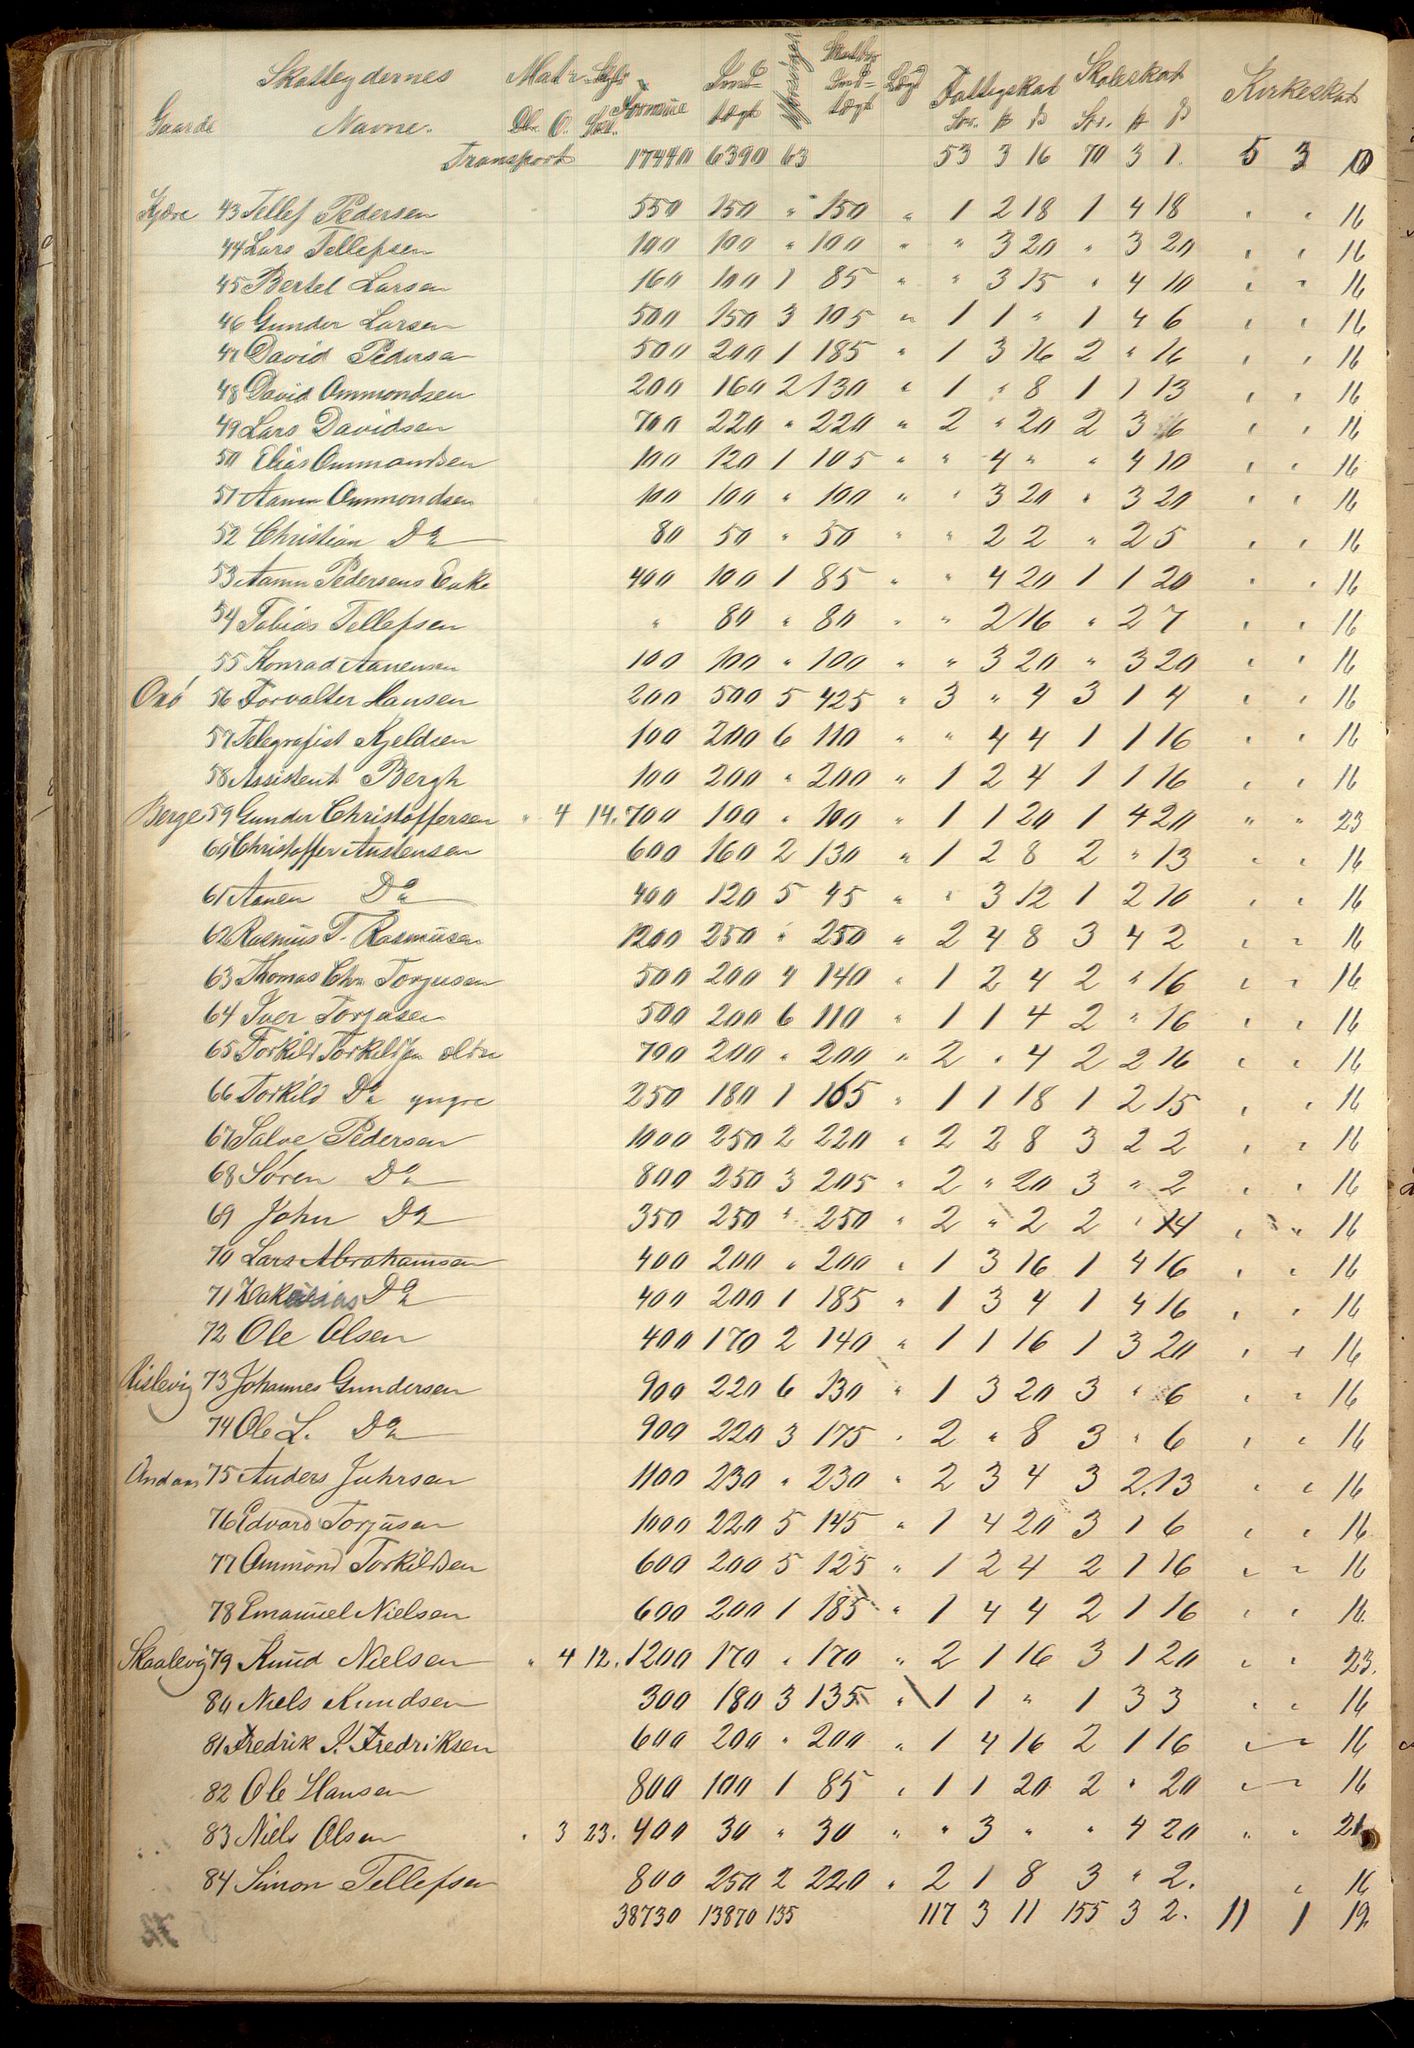 Skatteydernes Mat. Skyld Formue Ind- Forsørget Skatbar Lægd Fattigskat Skoleskat Kirkeskat
Gaarde Navne. Dlr. O. Skl. tægt Ind- tægt Spr. # ß Spr. # ß
Transport 17440 6390 63 53 3 16 70 3 1. 5 3 10
Kjøre 43 Tellef Pedersen 550 150 " 150 " 1 2 18 1 4 18 " " 16
44 Lars Tellefsen 100 100 " 100 " " 3 20 " 3 20 " " 16
45 Bertel Larsen 160 100 1 85 " " 3 15 " 4 10 " " 16
46 Gunder Larsen 500 150 3 105 " 1 1 " 1 4 6 " " 16
47 David Pedersen 500 200 1 185 " 1 3 16 2 " 16 " " 16
48 David Ommondsen 200 160 2 130 " 1 " 8 1 1 13 " " 16
49 Lars Davidsen 700 220 " 220 " 2 " 20 2 3 6 " " 16
50 Elias Ommondsen 100 120 1 105 " " 4 " " 4 10 " " 16
51 Aanen Ommondsen 100 100 " 100 " " 3 20 " 3 20 " " 16
52 Christian Do 80 50 " 50 " " 2 2 " 2 5 " " 16
53 Aanen Pedersens Enke 400 100 1 85 " " 4 20 1 1 20 " " 16
54 Tobias Tellefsen " 80 " 80 " " 2 16 " 2 7 " " 16
55 Konrad Aanensen 100 100 " 100 " " 3 20 " 3 20 " " 16
Oxö 56 Forvalter Hansen 200 500 5 425 " 3 " 4 3 1 4 " " 16
57 Telegrafist Kjeldsen 100 200 6 110 " " 4 4 1 1 16 " " 16
58 Assistent Bergh 100 200 " 200 " 1 2 4 1 1 16 " " 16
Berge 59 Gunder Christoffersen " 4 14. 700 100 " 100 " 1 1 20 1 4 20 " " 23
60 Christoffer Austensen 600 160 2 130 " 1 2 8 2 " 13 " " 16
61 Aanen Do 400 120 5 45 " " 3 12 1 2 10 " " 16
62 Rasmus T. Rasmusen 1200 250 " 250 " 2 4 8 3 4 2 " " 16
63 Thomas Chr. Torjusen 500 200 4 140 " 1 2 4 2 " 16 " " 16
64 Iver Torjusen 500 200 6 110 " 1 1 4 2 " 16 " " 16
65 Torkild Torkildsen ældre 700 200 " 200 " 2 " 4 2 2 16 " " 16
66 Torkild Do yngre 250 180 1 165 " 1 1 18 1 2 15 " " 16
67 Salve Pedersen 1000 250 2 220 " 2 2 8 3 2 2 " " 16
68 Søren Do 800 250 3 205 " 2 " 20 3 " 2 " " 16
69 John Do 350 250 " 250 " 2 " 2 2 " 14 " " 16
70 Lars Abrahamsen 400 200 " 200 " 1 3 16 1 4 16 " " 16
71 Zakarias Do 400 200 1 185 " 1 3 4 1 4 16 " " 16
72 Ole Olsen 400 170 2 140 " 1 1 16 1 3 20 " " 16
Rislevig 73 Johannes Gundersen 900 220 6 130 " 1 3 20 3 " 6 " " 16
74 Ole L. Do 900 220 3 175 " 2 " 8 3 " 6 " " 16
Andaas 75 Anders Juhrsen 1100 230 " 230 " 2 3 4 3 2. 13 " " 16
76 Edvard Torjusen 1000 220 5 145 " 1 4 20 3 1 6 " " 16
77 Ommond Torkildsen 600 200 5 125 " 1 2 4 2 1 16 " " 16
78 Emanuel Nielsen 600 200 1 185 " 1 4 4 2 1 16 " " 16
Skaalevig 79 Knud Nielsen " 4 12. 1200 170 " 170 " 2 1 16 3 1 20 " " 23.
80 Niels Knudsen 300 180 3 135 " 1 1 " 1 3 3 " " 16
81 Fredrik P. Fredriksen 600 200 " 200 " 1 4 16 2 1 16 " " 16
82 Ole Hansen 800 100 1 85 " 1 1 20 2 " 20 " " 16
83 Niels Olsen " 3 23. 400 30 " 30 " " 3 " " 4 20 " " 21
84 Simon Tellefsen 800 250 2 220 " 2 1 8 3 " 2. " 16
38730 13870 135 117 3 11 155 3 2. 11 1 19